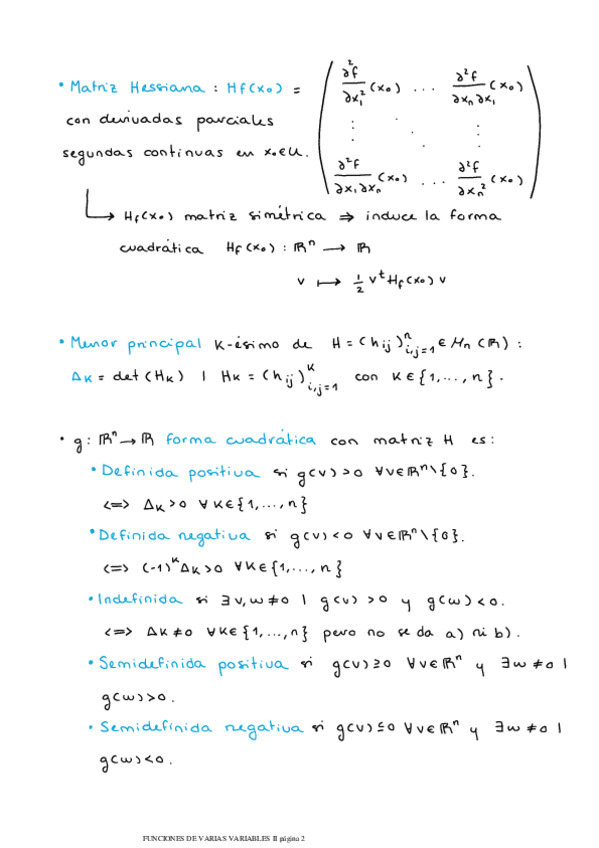 • Matriz Hessiana : Hf(x₀) = ( ∂²f/∂x₁² (x₀) ... ∂²f/∂xₙ∂x₁ (x₀)
con derivadas parciales ⋮ ⋱ ⋮
segundas continuas en x₀∈U. ∂²f/∂x₁∂xₙ (x₀) ... ∂²f/∂xₙ² (x₀) )
↳ Hf(x₀) matriz simétrica ⇒ induce la forma
cuadrática Hf(x₀) : ℝⁿ → ℝ
v ↦ ½ vᵗ Hf(x₀) v
• Menor principal k-ésimo de H = (hij)ⁿi,j=1 ∈ Mn(ℝ) :
Δk = det(Hk) | Hk = (hij)ᵏi,j=1 con k∈{1,...,n}.
• g: ℝⁿ→ℝ forma cuadrática con matriz H es:
• Definida positiva si g(v)>0 ∀v∈ℝⁿ\{0}.
<=> Δk>0 ∀k∈{1,...,n}
• Definida negativa si g(v)<0 ∀v∈ℝⁿ\{0}.
<=> (-1)ᵏΔk>0 ∀k∈{1,...,n}
• Indefinida si ∃v,w≠0 | g(v)>0 y g(w)<0.
<=> Δk≠0 ∀k∈{1,...,n} pero no se da a) ni b).
• Semidefinida positiva si g(v)≥0 ∀v∈ℝⁿ y ∃w≠0 |
g(w)>0.
• Semidefinida negativa si g(v)≤0 ∀v∈ℝⁿ y ∃w≠0 |
g(w)<0.
FUNCIONES DE VARIAS VARIABLES II página 2